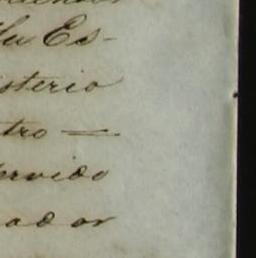 Su Es-
isterio
tro —
ervido
ador